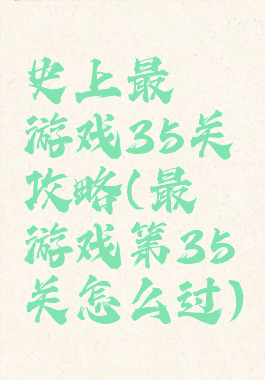 史上最
游戏35关
攻略(最
游戏第35
关怎么过)